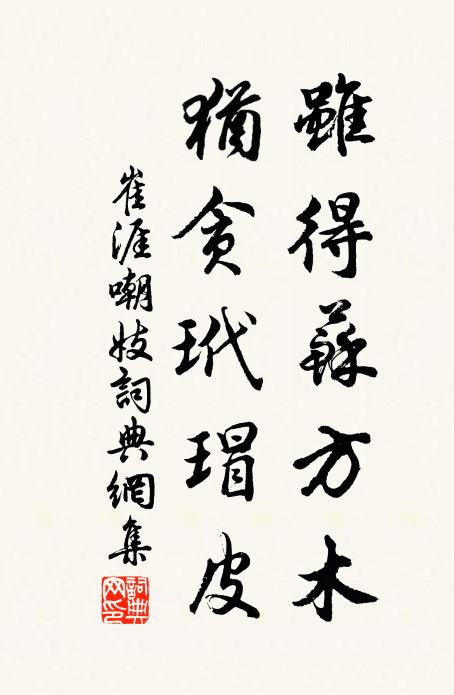 雖得蘇方木
猶貪玳瑁皮
崔涯嘲妓詞典網集
詞典網印